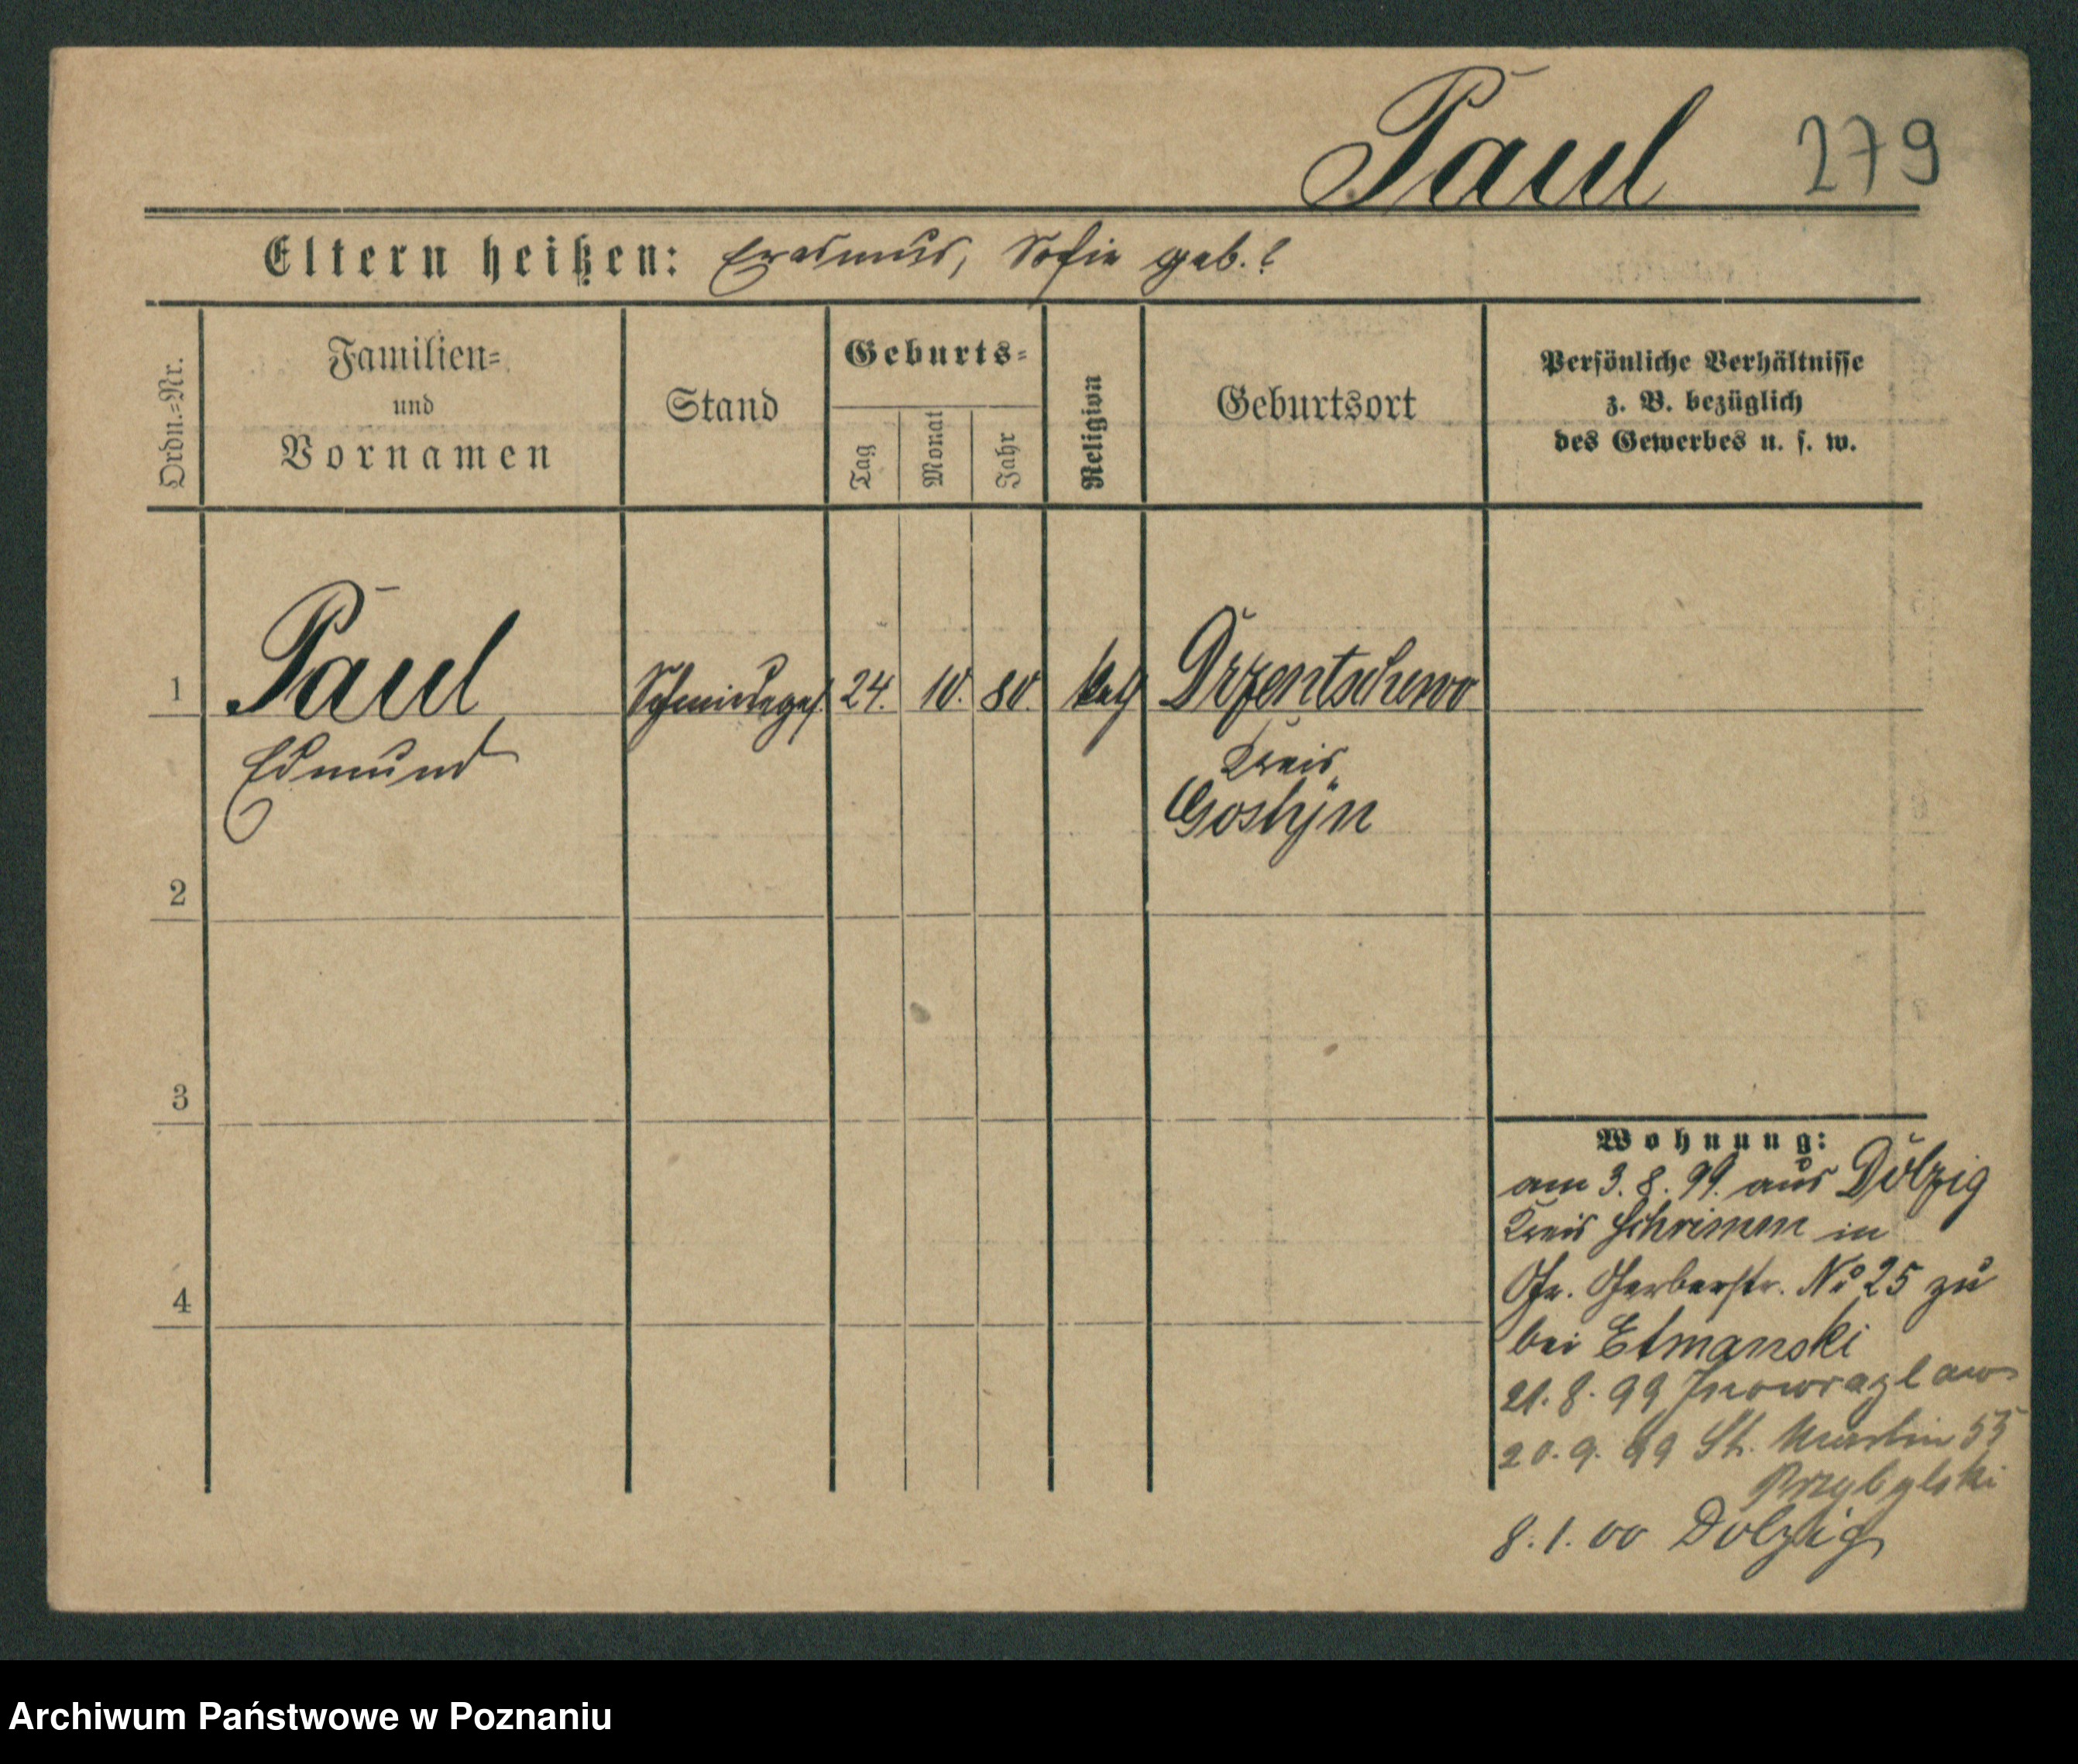 Paul 279
Eltern heißen: Erasmus, Sofie geb.?
Ordn.=Nr.
Familien=
und
Vornamen
Stand
Geburts=
Tag
Monat
Jahr
Religion
Geburtsort
Persönliche Verhältnisse
z. B. bezüglich
des Gewerbes u. s. w.
1 Paul Schmiedeges. 24. 10. 80. kath Drzentschewo
Edmund Kreis
Gostyn
2
3
4
Wohnung:
am 3. 8. 99. aus Dolzig
Kreis Schrimm in
Gr. Gerberstr. No 25 zu
bei Etmanski
21. 8. 99 Inowrazlaw
20. 9. 99 St. Martin 55
Przybylski
8. 1. 00 Dolzig
Archiwum Państwowe w Poznaniu